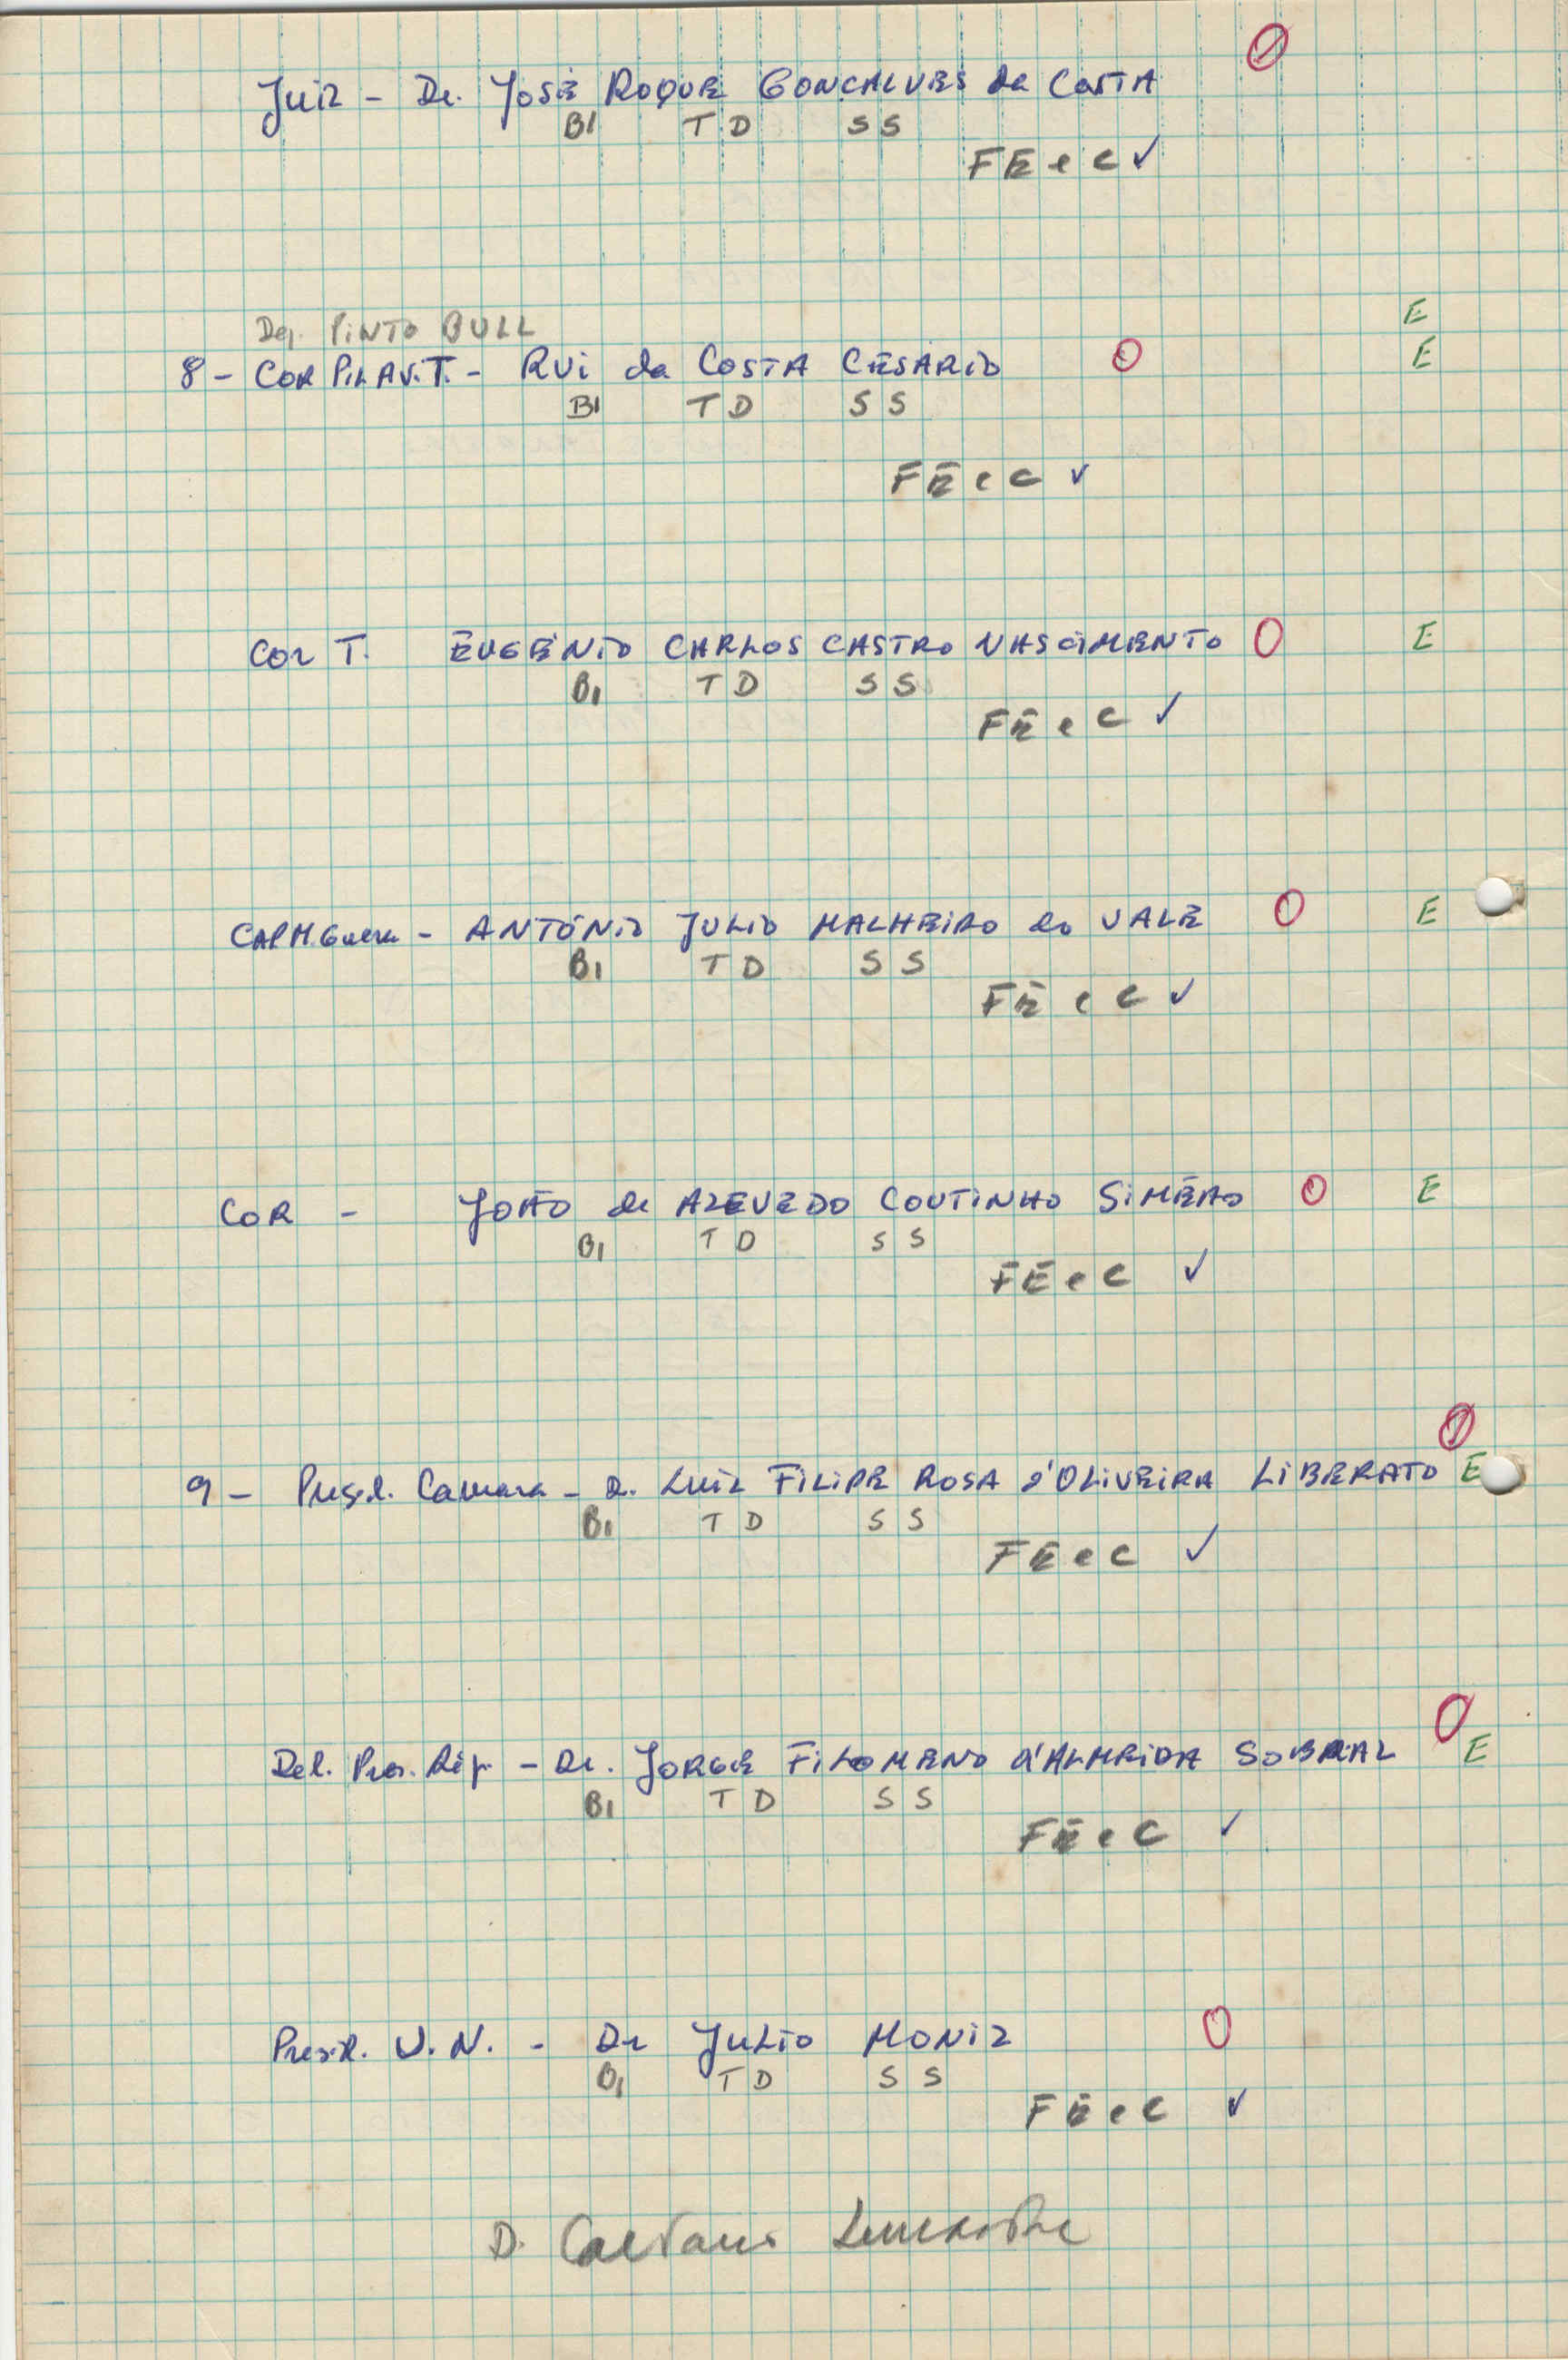 Juiz - Dr. José ROQUE GONÇALVES da COSTA O
BI T D S S
FE e C ✓
Dep. PINTO BULL E
8 - COR PILAV. T. - RUI da COSTA CESARIO O E
BI T D S S
FE e C ✓
Cor T. EUGÉNIO CARLOS CASTRO NASCIMENTO O E
BI T D S S
FE e C ✓
CAP M. Guerra - ANTÓNIO JULIO MALHEIRO do VALE O E
BI T D S S
FE e C ✓
COR - JOÃO de AZEVEDO COUTINHO SIMÉAO O E
BI T D S S
FE e C ✓
9 - Presid. Camara - D. LUIZ FILIPE ROSA d'OLIVEIRA LIBERATO O E
BI T D S S
FE e C ✓
Del. Proc. Rép. - Dr. JORGE FILOMENO d'ALMEIDA SOBRAL O E
BI T D S S
FE e C ✓
Presid. U.N. - Dr JULIO MONIZ O
BI T D S S
FE e C ✓
D. Caetano